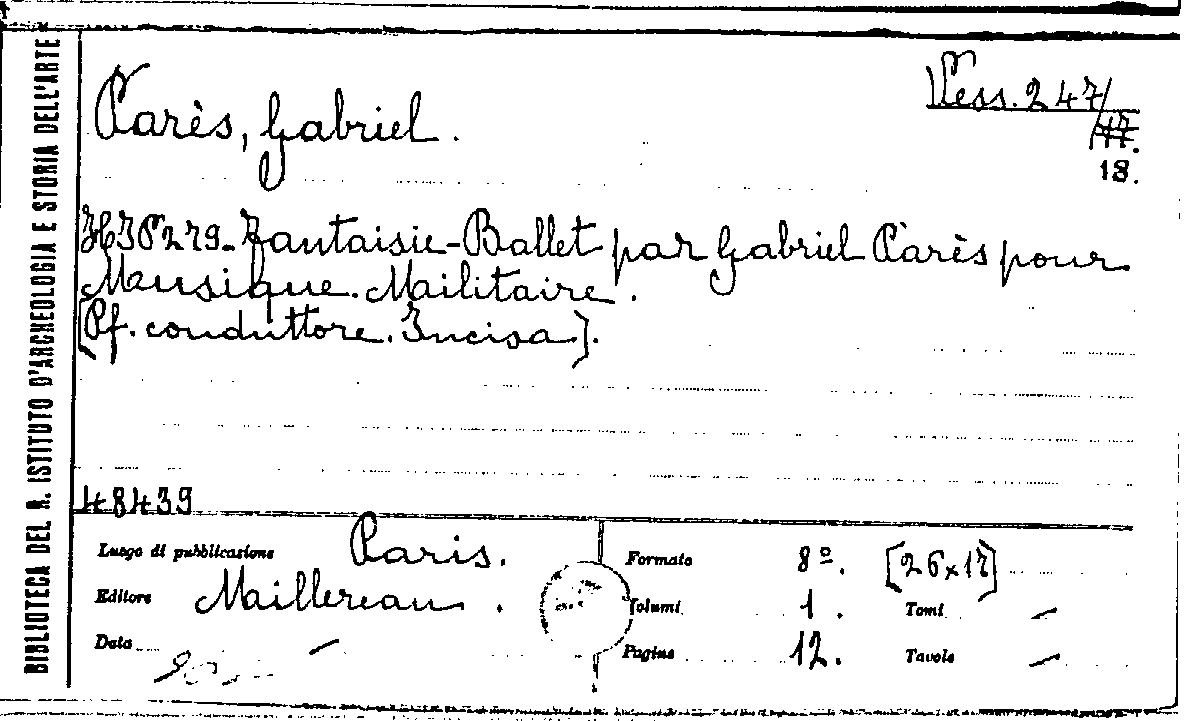 BIBLIOTECA DEL R. ISTITUTO D'ARCHEOLOGIA E STORIA DELL'ARTE
Vess. 247/
17.
18.
Parès, Gabriel.
Fantaisie-Ballet par Gabriel Parès pour
Musique. Mailitaire.
[Pf. conduttore. Incisa].
48439
Luogo di pubblicazione Paris.
Editore Maillereau.
Data –
Formato 8º. [26x17]
Volumi 1. Tomi –
Pagine 12. Tavole –